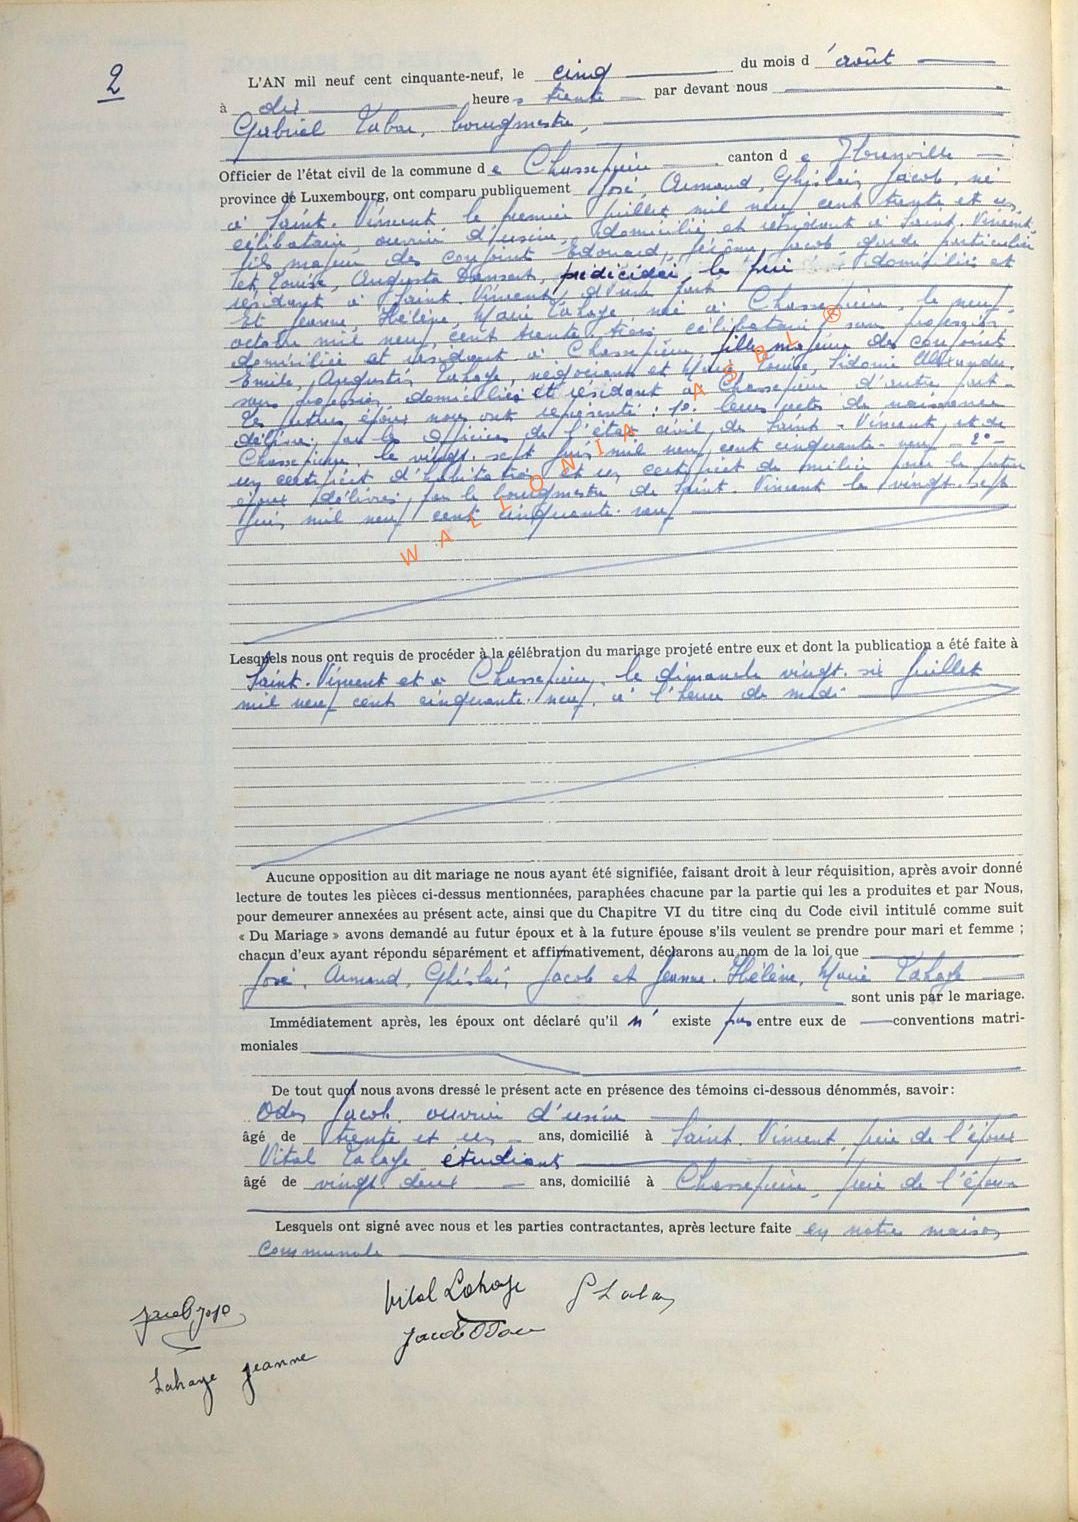 2
L'AN mil neuf cent cinquante-neuf, le cinq du mois d'août
à dix heures trente par devant nous
Gabriel Labar, bourgmestre,
Officier de l'état civil de la commune de Chassepierre canton de Florenville
province de Luxembourg, ont comparu publiquement José, Armand, Ghislain, Jacob, né
à Saint-Vincent le premier juillet mil neuf cent trente et un,
célibataire, ouvrier d'usine, domicilié et résidant à Saint-Vincent
fils majeur des conjoints Edouard, Jérôme, Jacob garde particulier
et Louise, Augusta prédécédée, le père domicilié et
résidant à Saint-Vincent, d'une part
Et Jeanne, Hélène, Marie Lahaye, née à Chassepierre, le neuf
octobre mil neuf cent trente-trois célibataire, sans profession
domiciliée et résidant à Chassepierre, fille majeure des conjoints
Emile, Augustin Lahaye, négociant et Marie, Louise, Sidonie Alexandre
sans profession, domiciliés et résidant à Chassepierre d'autre part.
Les futurs époux nous ont représenté : 1°. leurs actes de naissance
délivrés par les Officiers de l'état civil de Saint-Vincent et de
Chassepierre, le vingt-sept juin mil neuf cent cinquante-neuf - 2° -
un certificat d'habitation et un certificat de milice pour le futur
époux délivrés par le bourgmestre de Saint-Vincent le vingt-sept
juin mil neuf cent cinquante-neuf
WALLONIA ASBL ®
Lesquels nous ont requis de procéder à la célébration du mariage projeté entre eux et dont la publication a été faite à
Saint-Vincent et à Chassepierre, le dimanche vingt-six juillet
mil neuf cent cinquante-neuf, à l'heure de midi.
Aucune opposition au dit mariage ne nous ayant été signifiée, faisant droit à leur réquisition, après avoir donné
lecture de toutes les pièces ci-dessus mentionnées, paraphées chacune par la partie qui les a produites et par Nous,
pour demeurer annexées au présent acte, ainsi que du Chapitre VI du titre cinq du Code civil intitulé comme suit
« Du Mariage » avons demandé au futur époux et à la future épouse s'ils veulent se prendre pour mari et femme ;
chacun d'eux ayant répondu séparément et affirmativement, déclarons au nom de la loi que
José, Armand, Ghislain Jacob et Jeanne, Hélène, Marie Lahaye
sont unis par le mariage.
Immédiatement après, les époux ont déclaré qu'il n' existe pas entre eux de conventions matri-
moniales
De tout quoi nous avons dressé le présent acte en présence des témoins ci-dessous dénommés, savoir :
Odon Jacob, ouvrier d'usine
âgé de trente et un ans, domicilié à Saint-Vincent, frère de l'époux
Vital Lahaye étudiant
âgé de vingt-deux ans, domicilié à Chassepierre, frère de l'épouse
Lesquels ont signé avec nous et les parties contractantes, après lecture faite en notre maison
communale
Jacob José Vital Lahaye G Labar
Jacob Odon
Lahaye Jeanne